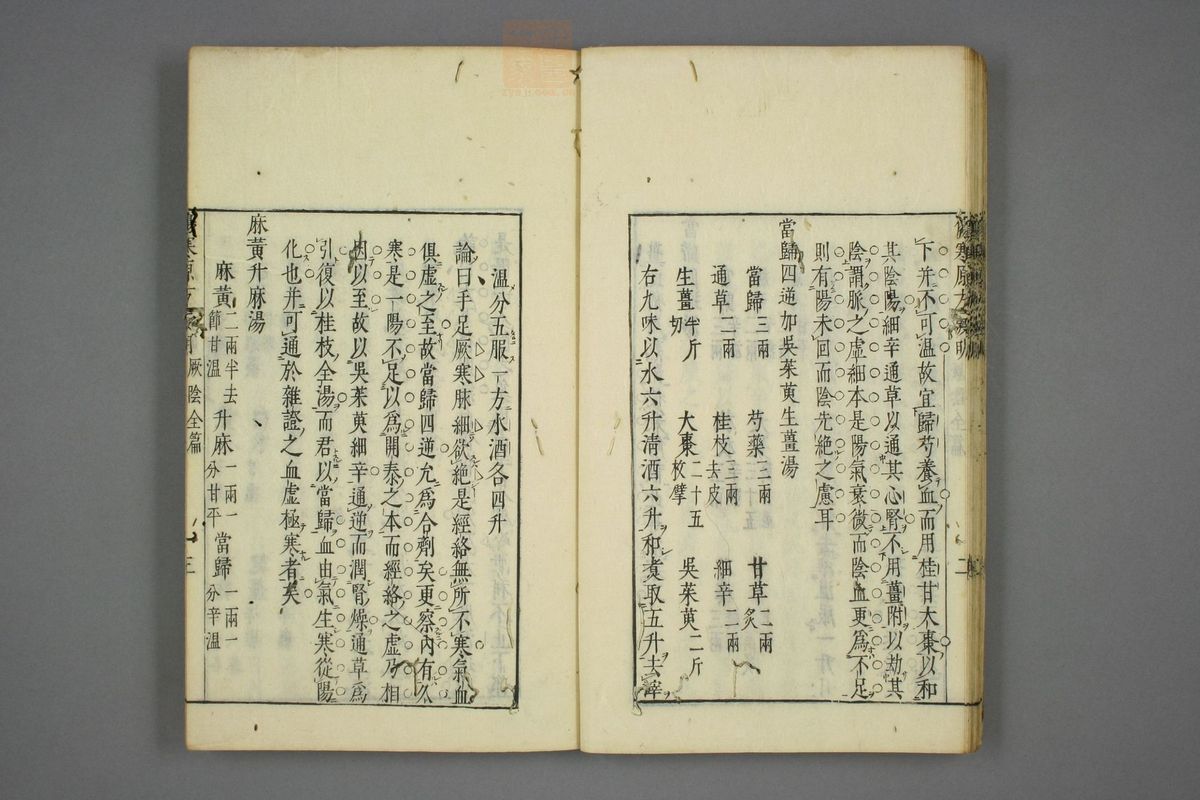 下并不可溫故宜歸芍養血而用桂甘大棗以和
其陰陽細辛通草以通其心腎不用薑附以劫其
陰謂脈之虛細本是陽氣衰微而陰血更爲不足
則有陽未回而陰先絕之慮耳
當歸四逆加吳茱萸生薑湯
當歸三兩 芍藥三兩 甘草炙二兩
通草二兩 桂枝去皮三兩 細辛二兩
生薑切半斤 大棗二十五枚擘 吳茱萸二斤
右九味以水六升清酒六升和煮取五升去滓
溫分五服一方水酒各四升
論曰手足厥寒脉細欲絕是經絡無所不寒氣血
俱虛之至故當歸四逆允爲合劑矣更察內有久
寒是一陽不足以爲開泰之本而經絡之虛乃相
因以至故以吳茱萸細辛通逆而潤腎燥通草爲
引復以桂枝全湯而君以當歸血由氣生寒從陽
化也并可通於雜證之血虛極寒者矣
麻黃升麻湯
麻黃二兩半去節甘溫 升麻一兩一分甘平 當歸一兩一分辛溫
厥陰全篇
三